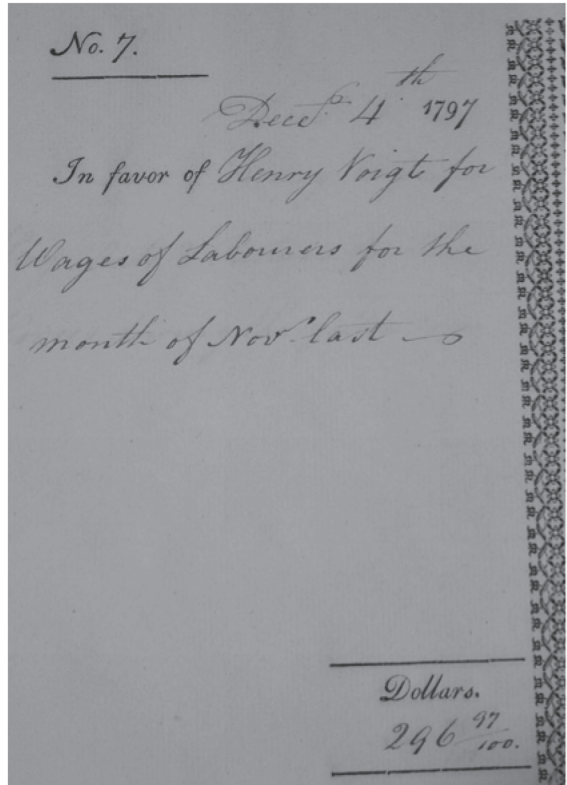 No. 7.
Decr. 4th 1797
In favor of Henry Voigt for
Wages of Labourers for the
month of Novr. last
Dollars.
296 97/100.